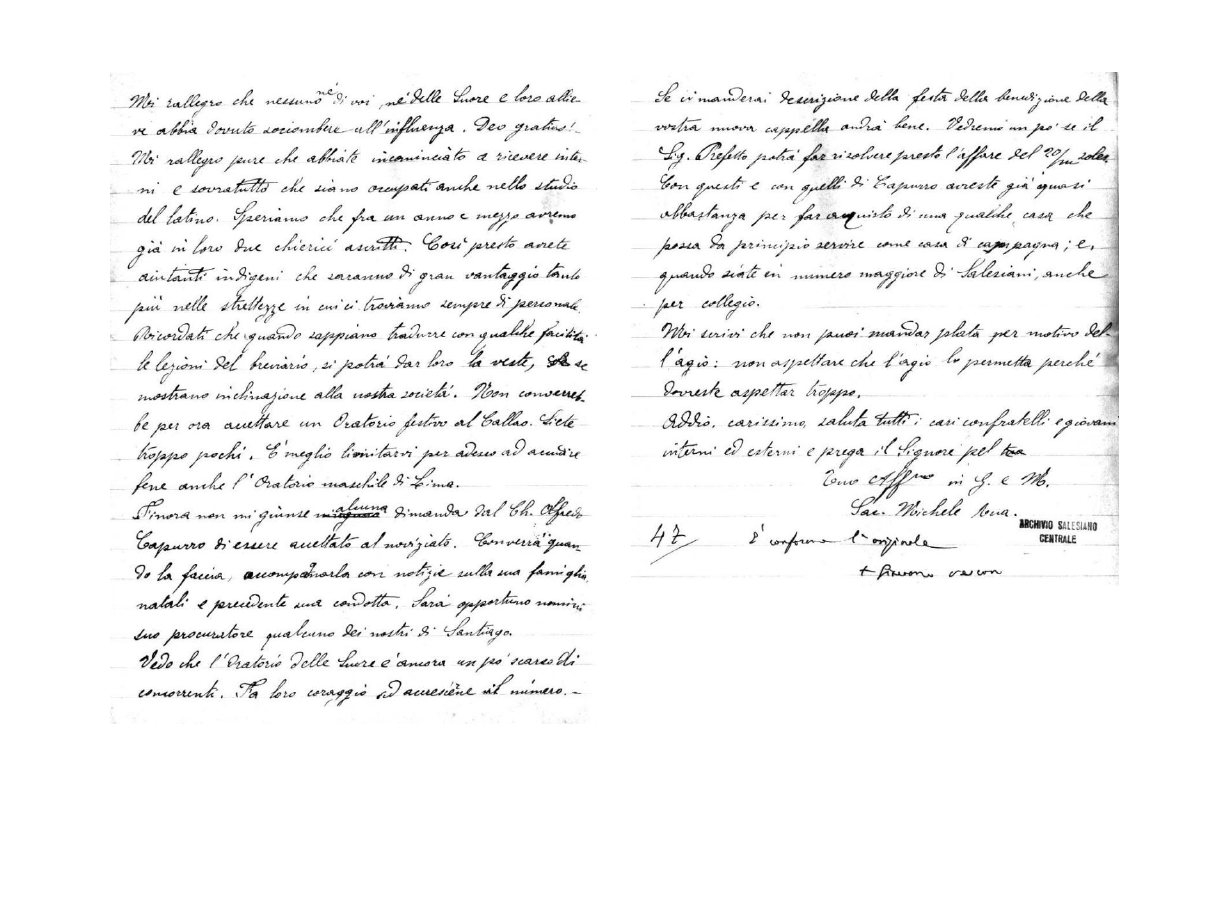 Mi rallegro che nessuno nè di voi, nè delle Suore e loro allie-
ve abbia dovuto soccombere all'influenza. Deo gratias!
Mi rallegro pure che abbiate incominciato a ricevere inter-
ni e sovratutto che siano occupati anche nello studio
del latino. Speriamo che fra un anno e mezzo avremo
già in loro due chierici ascritti. Così presto avrete
aiutanti indigeni che saranno di gran vantaggio tanto
più nelle strettezze in cui ci troviamo sempre di personale.
Ricordati che quando sappiano tradurre con qualche facilità
le lezioni del breviario, si potrà dar loro la veste, se
mostrano inclinazione alla nostra società. Non converreb-
be per ora accettare un Oratorio festivo al Callao. Siete
troppo pochi. È meglio limitarvi per adesso ad accudire
bene anche l'Oratorio maschile di Lima.
Finora non mi giunse alcuna dimanda dal Ch. Alfredo
Capurro di essere accettato al noviziato. Converrà quan-
do la faccia, accompagnarla con notizie sulla sua famiglia,
natali e precedente sua condotta. Sarà opportuno nomini
suo procuratore qualcuno dei nostri di Santiago.
Vedo che l'Oratorio delle Suore è ancora un pò scarso di
concorrenti. Fa loro coraggio ad accrescerne il número.-
Se ci manderai descrizione della festa della benedizione della
vostra nuova cappella andrà bene. Vedremo un pò se il
Sig. Prefetto potrà far risolvere presto l'affare del 20/m soles
Con questi e con quelli di Capurro avreste già quasi
abbastanza per far acquisto di una qualche casa che
possa da principio servire come casa di campagna; e,
quando siate in numero maggiore di Salesiani, anche
per collegio.
Mi scrivi che non puoi mandar plata per motivo del-
l'agio: non aspettare che l'agio lo permetta perché
dovreste aspettar troppo.
Addio, carissimo, saluta tutti i cari confratelli e giovani
interni ed esterni e prega il Signore pel tuo
Tuo Affmo in G. e M.
Sac. Michele Rua.
ARCHIVIO SALESIANO
CENTRALE
47 È conforme l'originale